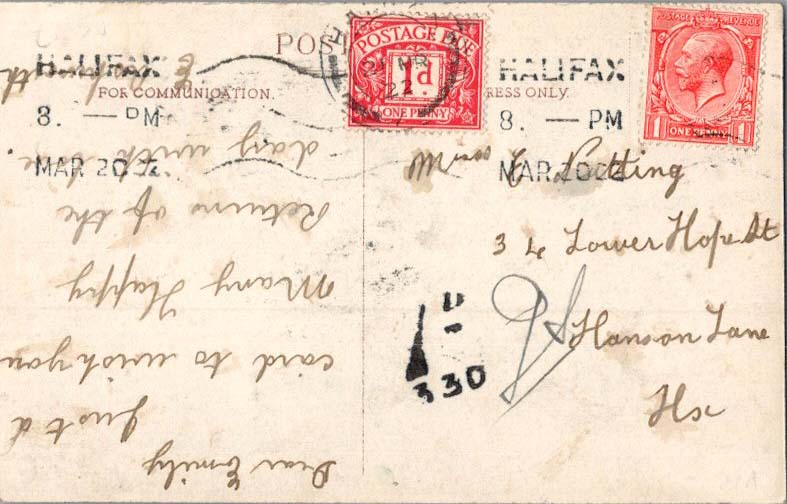 HALIFAX
8. — PM
MAR 20 22
POSTAGE DUE
1d
ONE PENNY
HALIFAX
8. — PM
MAR 20 22
POSTAGE REVENUE
1 ONE PENNY 1
POST
FOR COMMUNICATION.
RESS ONLY.
Dear Emily
Just a
card to wish you
Many Happy
Returns of the
day with
34 Lower Hope St
Hanson Lane
Hx
1D
330